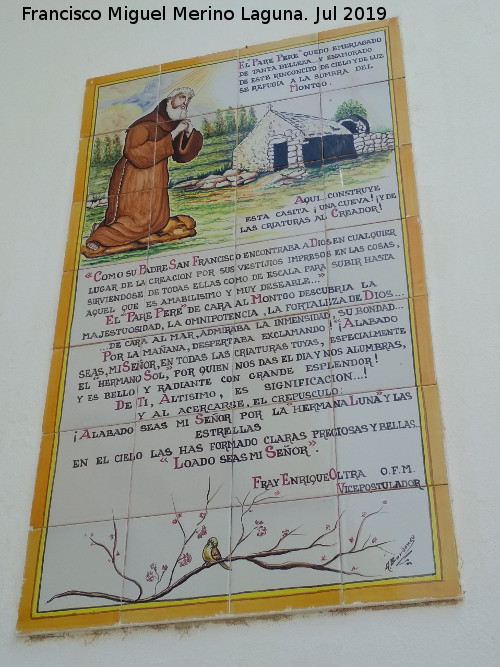 Francisco Miguel Merino Laguna. Jul 2019
EL "PARE PERE" QUEDO EMBRIAGADO
DE TANTA BELLEZA... Y ENAMORADO
DE ESTE RINCONCITO DE CIELO Y DE LUZ
SE REFUGIA A LA SOMBRA DEL
MONTGO.
AQUI... CONSTRUYE
ESTA CASITA ¡UNA CUEVA! ¡Y DE
LAS CRIATURAS AL CREADOR!
"COMO SU PADRE SAN FRANCISCO ENCONTRABA A DIOS EN CUALQUIER
LUGAR DE LA CREACION POR SUS VESTIJIOS IMPRESOS EN LAS COSAS,
SIRVIENDOSE DE TODAS ELLAS COMO DE ESCALA PARA SUBIR HASTA
AQUEL QUE ES AMABILISIMO Y MUY DESEABLE..."
EL "PARE PERE" DE CARA AL MONTGO DESCUBRIA LA
MAJESTUOSIDAD, LA OMNIPOTENCIA, LA FORTALEZA DE DIOS...
...DE CARA AL MAR, ADMIRABA LA INMENSIDAD, SU BONDAD...
POR LA MAÑANA, DESPERTABA EXCLAMANDO: "¡ALABADO
SEAS, MI SEÑOR, EN TODAS LAS CRIATURAS TUYAS, ESPECIALMENTE
EL "HERMANO SOL", POR QUIEN NOS DAS EL DIA Y NOS ALUMBRAS,
Y ES BELLO Y RADIANTE CON GRANDE ESPLENDOR!
DE TI, ALTISIMO, ES SIGNIFICACION...!
Y AL ACERCARSE, EL CREPUSCULO:
¡ALABADO SEAS MI SEÑOR POR LA "HERMANA LUNA" Y LAS
ESTRELLAS
EN EL CIELO LAS HAS FORMADO CLARAS PRECIOSAS Y BELLAS...
"LOADO SEAS MI SEÑOR".
FRAY ENRIQUE OLTRA O.F.M.
VICEPOSTULADOR